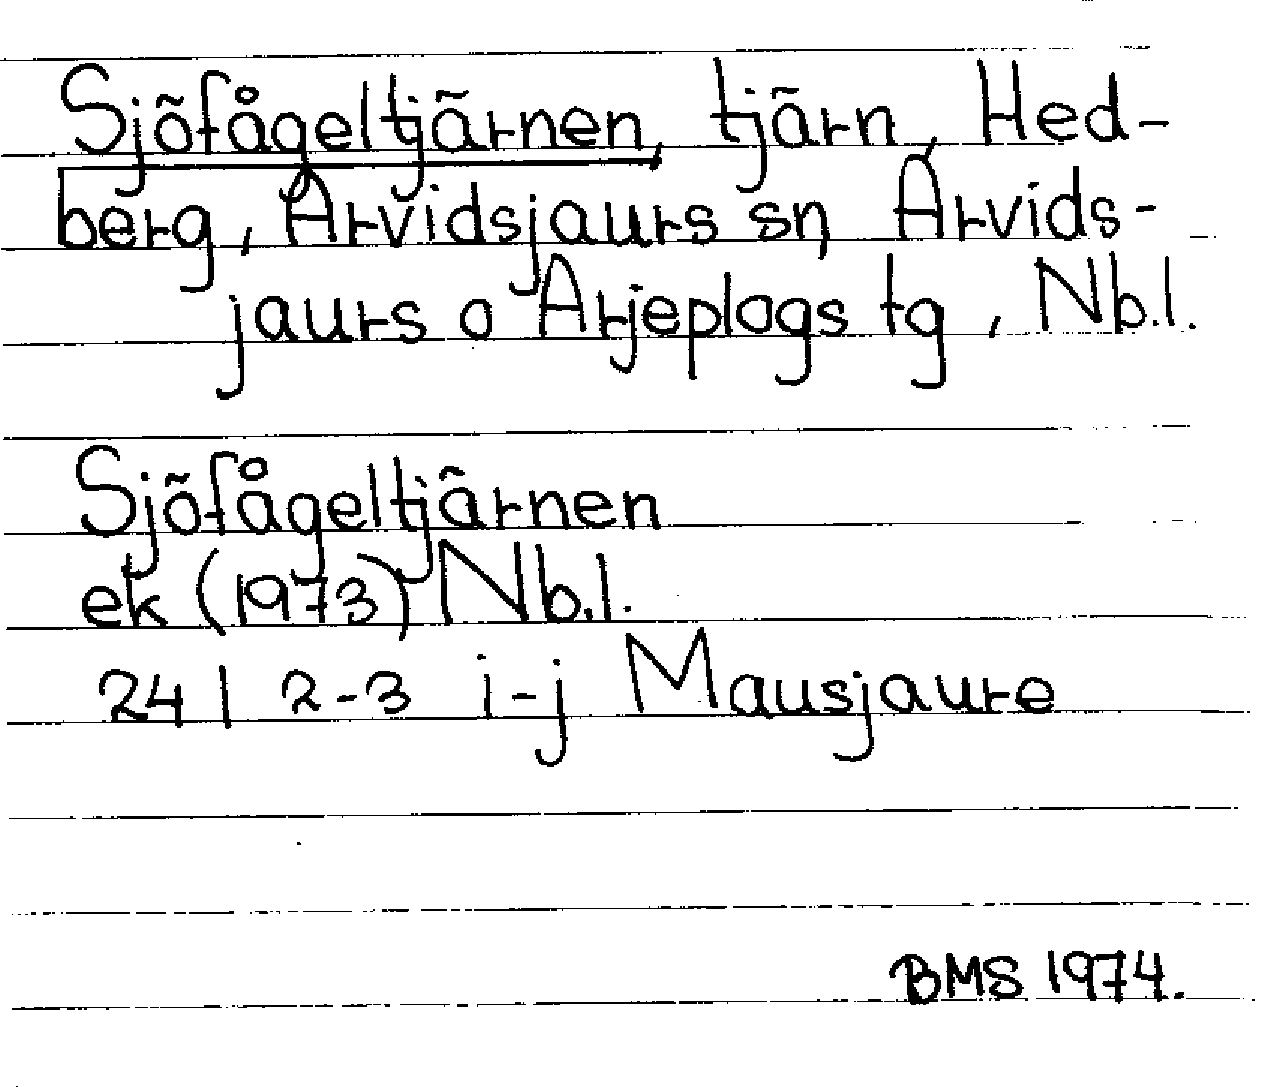 Sjöfågeltjärnen, tjärn, Hed-
berg, Arvidsjaurs sn, Arvids-
jaurs o Arjeplogs tg, Nb.l.
Sjöfågeltjärnen
ek (1973) Nb.l.
24 I 2-3 i-j Mausjaure
BMS 1974.